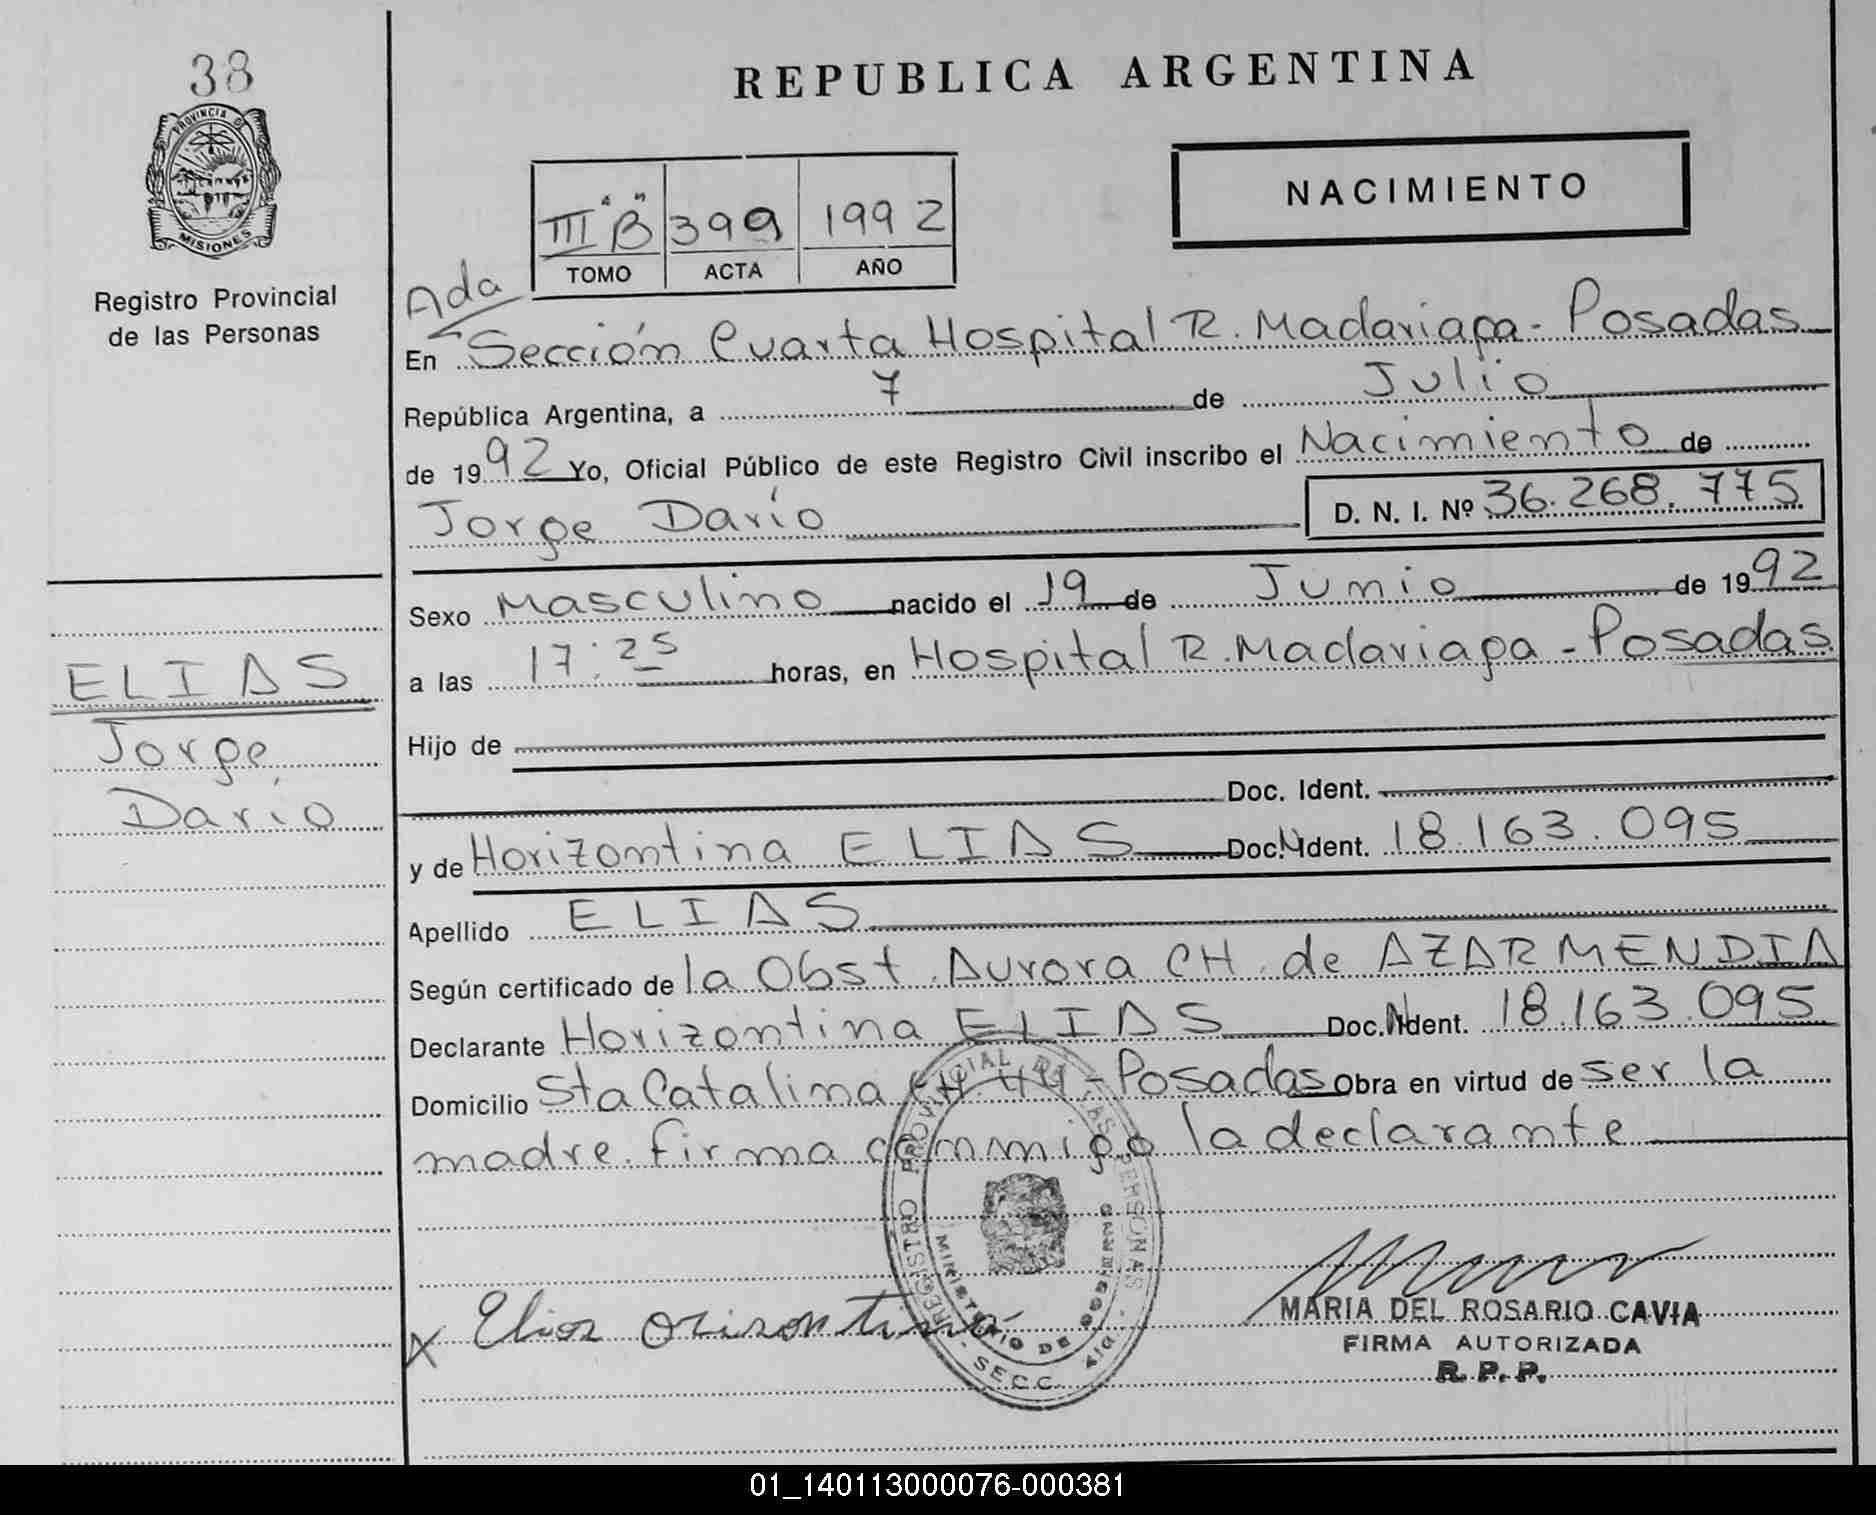 38
PROVINCIA DE
MISIONES
Registro Provincial
de las Personas
REPUBLICA ARGENTINA
NACIMIENTO
III "B" 399 1992
TOMO ACTA AÑO
Ada
En Sección Cuarta Hospital R. Madariaga - Posadas
República Argentina, a 7 de Julio
de 1992 Yo, Oficial Público de este Registro Civil inscribo el Nacimiento de
Jorge Darío D. N. I. Nº 36.268.775
Sexo Masculino nacido el 19 de Junio de 1992
a las 17:25 horas, en Hospital R. Madariaga - Posadas
Hijo de
Doc. Ident.
y de Horizontina ELIAS Doc. Ident. 18.163.095
Apellido ELIAS
Según certificado de la Obst. Aurora CH. de AZARMENDIA
Declarante Horizontina ELIAS Doc. Ident. 18.163.095
Domicilio Sta Catalina CH 44 - Posadas Obra en virtud de ser la
madre. firma conmigo la declarante
ELIAS
Jorge
Darío
REGISTRO PROVINCIAL DE LAS PERSONAS
MINISTERIO DE GOBIERNO
SECC. 4ta
X Elias Orisontina
MARIA DEL ROSARIO CAVIA
FIRMA AUTORIZADA
R. P. P.
01_140113000076-000381